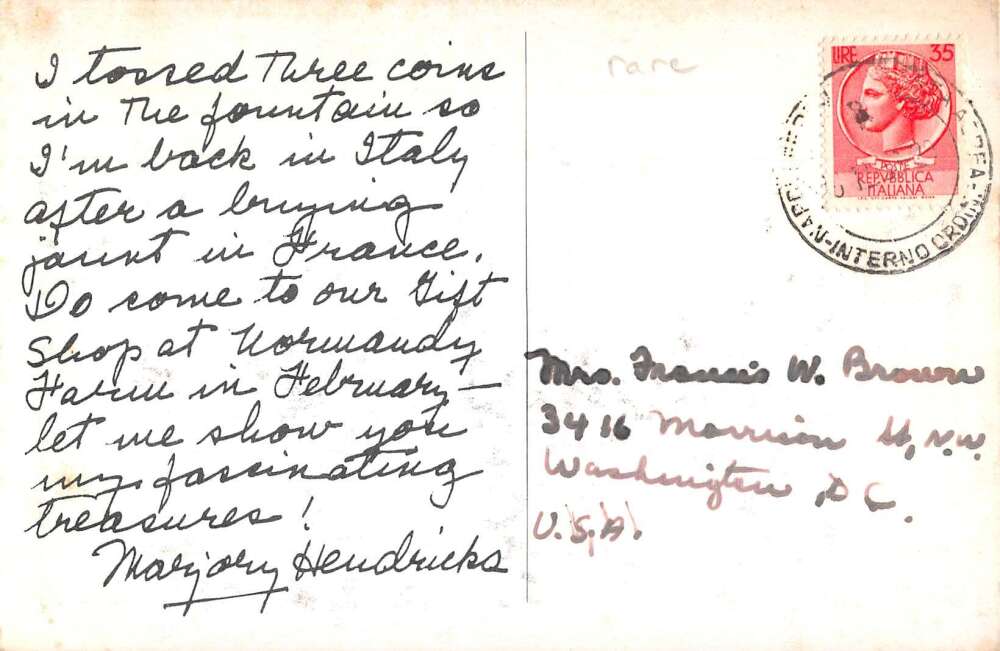 I tossed three coins
in the fountain so
I'm back in Italy
after a buying
jaunt in France.
Do come to our Gift
Shop at Normandy
Farm in February —
let me show you
my fascinating
treasures!
Marjory Hendricks
rare
LIRE 35
POSTE
REPVBBLICA
ITALIANA
INTERNO ORDIN
Mrs. Francis W. Brown
3416 Morrison St, N.W.
Washington, D C.
U.S.A.